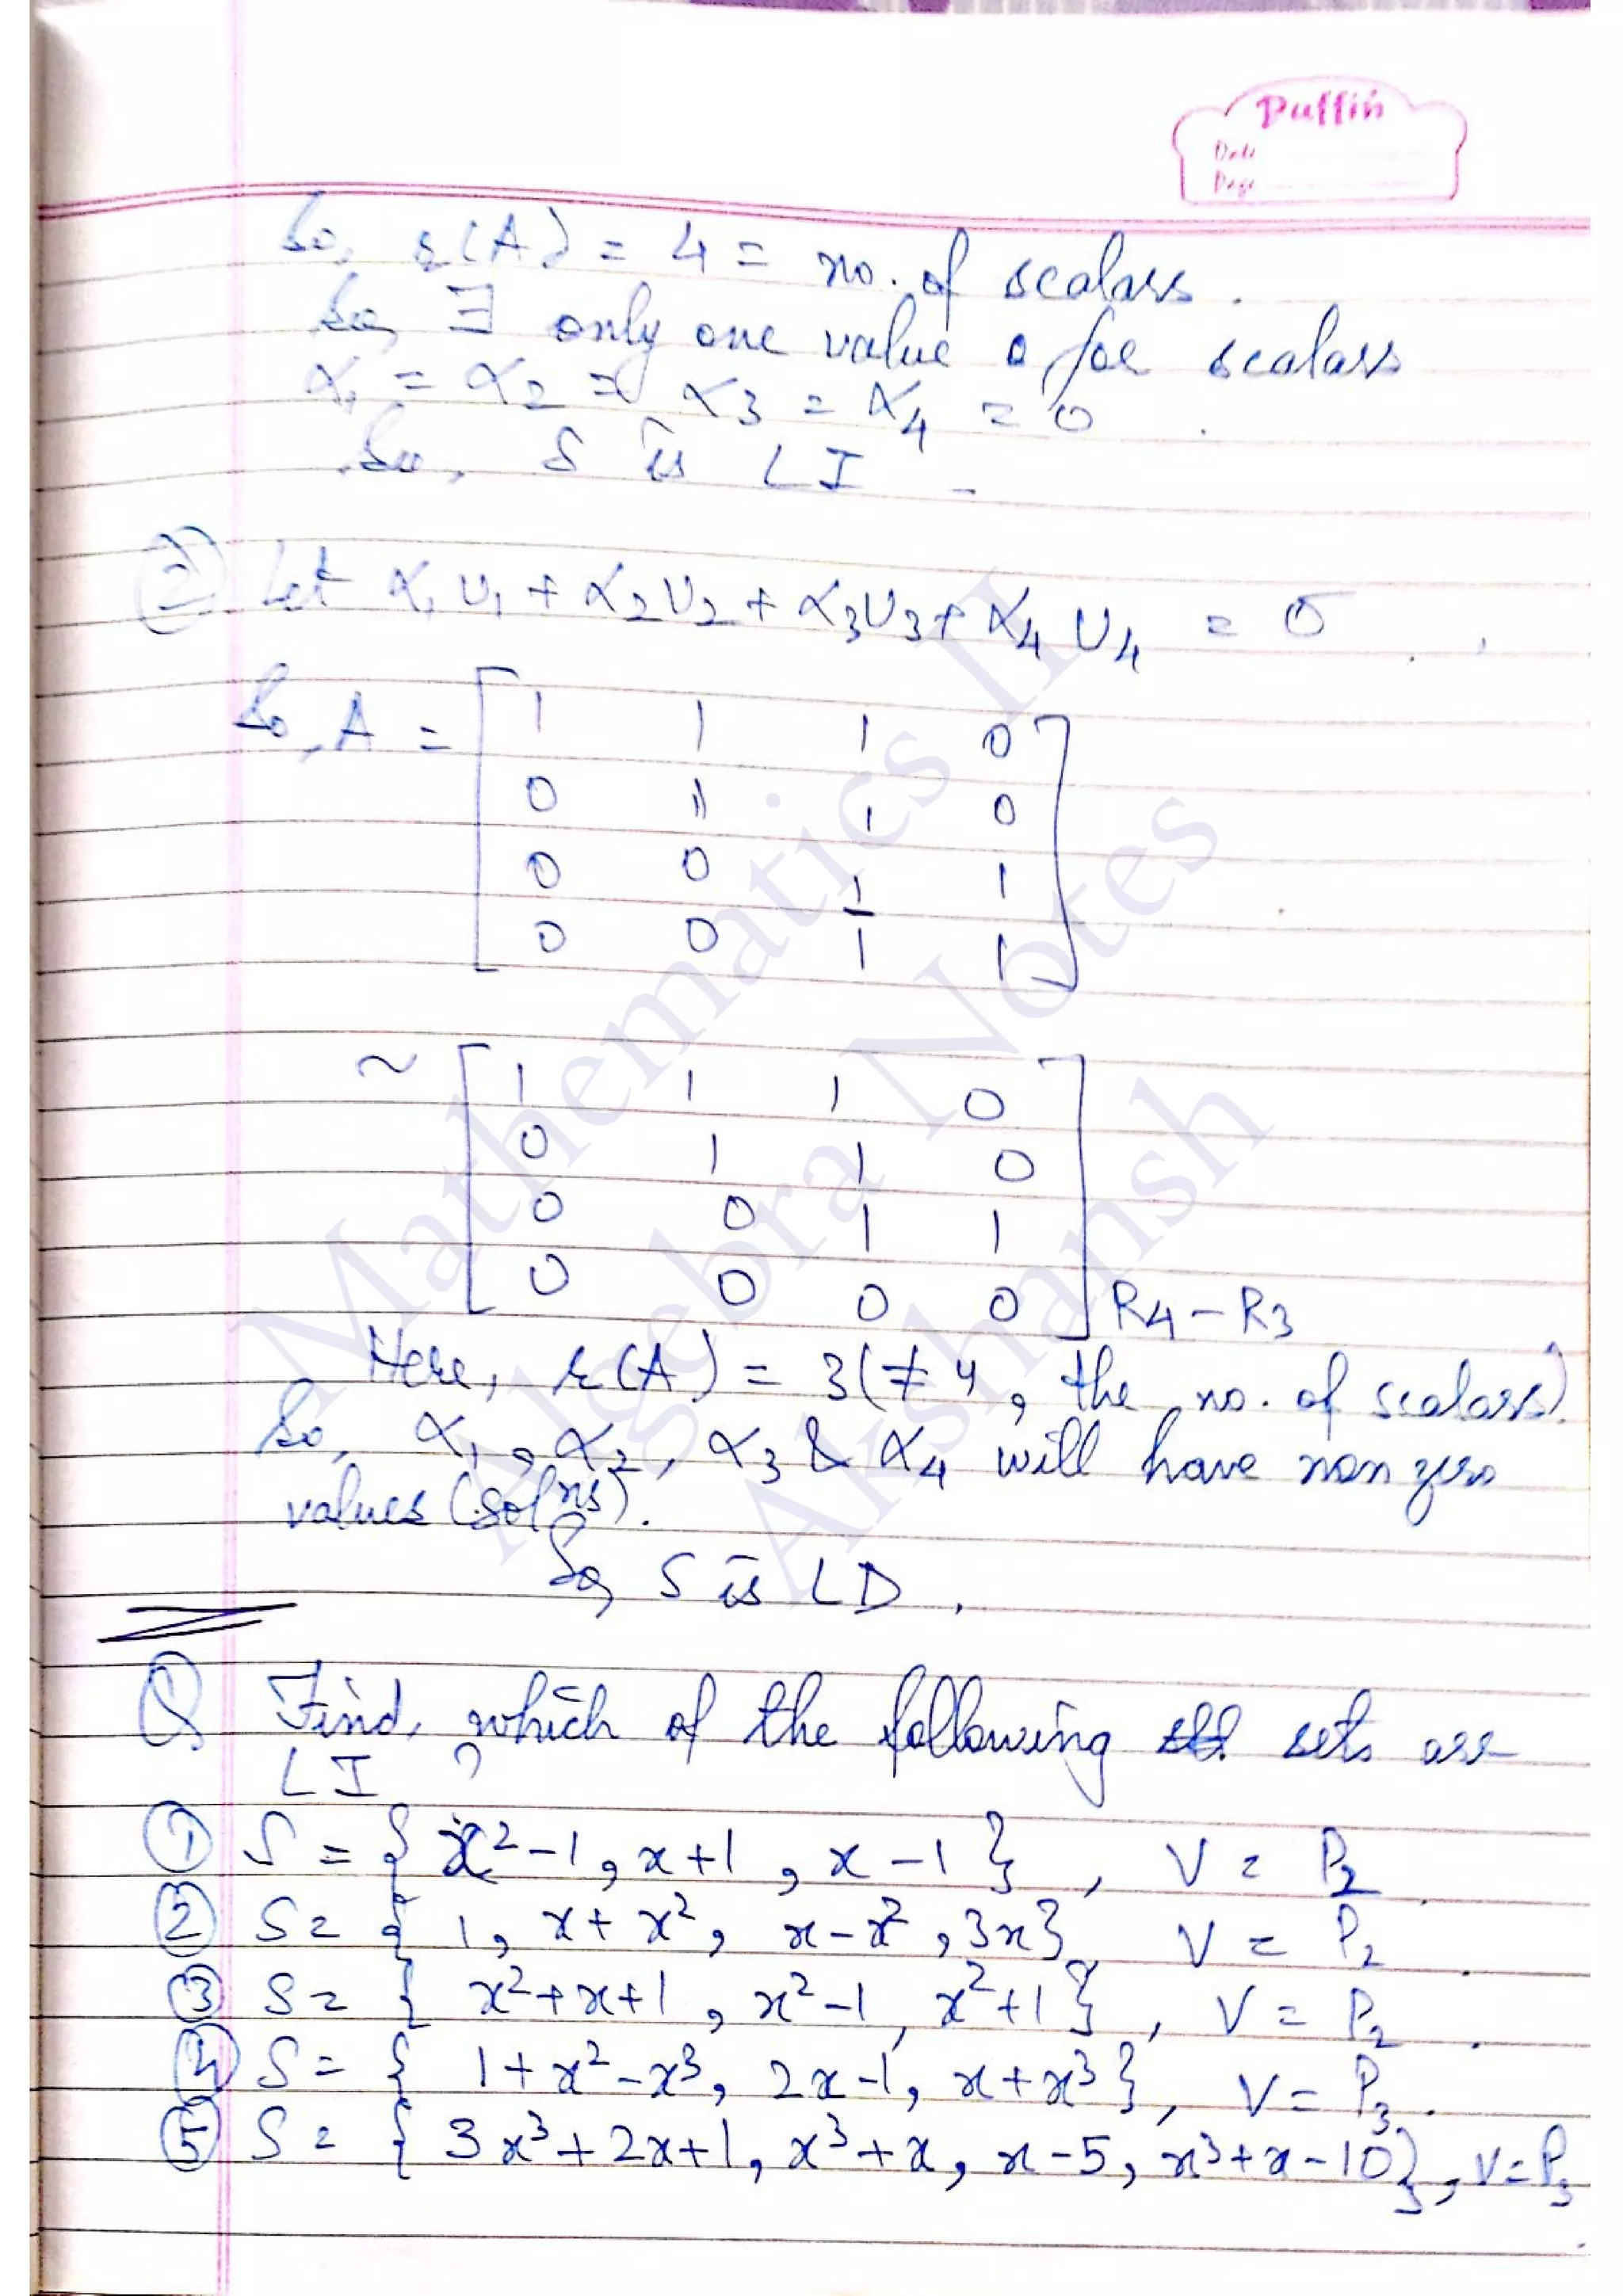 Puffin
Date
Page
So, r(A) = 4 = no. of scalars.
So, ∃ only one value 0 for scalars
α₁ = α₂ = α₃ = α₄ = 0.
So, S is LI.
② Let α₁v₁ + α₂v₂ + α₃v₃ + α₄v₄ = 0̄.
So, A = [ 1 1 1 0
0 1 1 0
0 0 1 1
0 0 1 1 ]
~ [ 1 1 1 0
0 1 1 0
0 0 1 1
0 0 0 0 ] R4 – R3
Here, r(A) = 3 (≠ 4, the no. of scalars).
So, α₁, α₂, α₃ & α₄ will have non zero
values (solⁿˢ).
So, S is LD.
Q Find, which of the following sets are
LI ?
① S = { x²-1, x+1, x-1 }, V = P₂.
② S = { 1, x+x², x-x², 3x }, V = P₂.
③ S = { x²+x+1, x²-1, x²+1 }, V = P₂.
④ S = { 1+x²-x³, 2x-1, x+x³ }, V = P₃.
⑤ S = { 3x³+2x+1, x³+x, x-5, x³+x-10 }, V=P₃.
Mathematics II
Algebra Notes
Akshansh